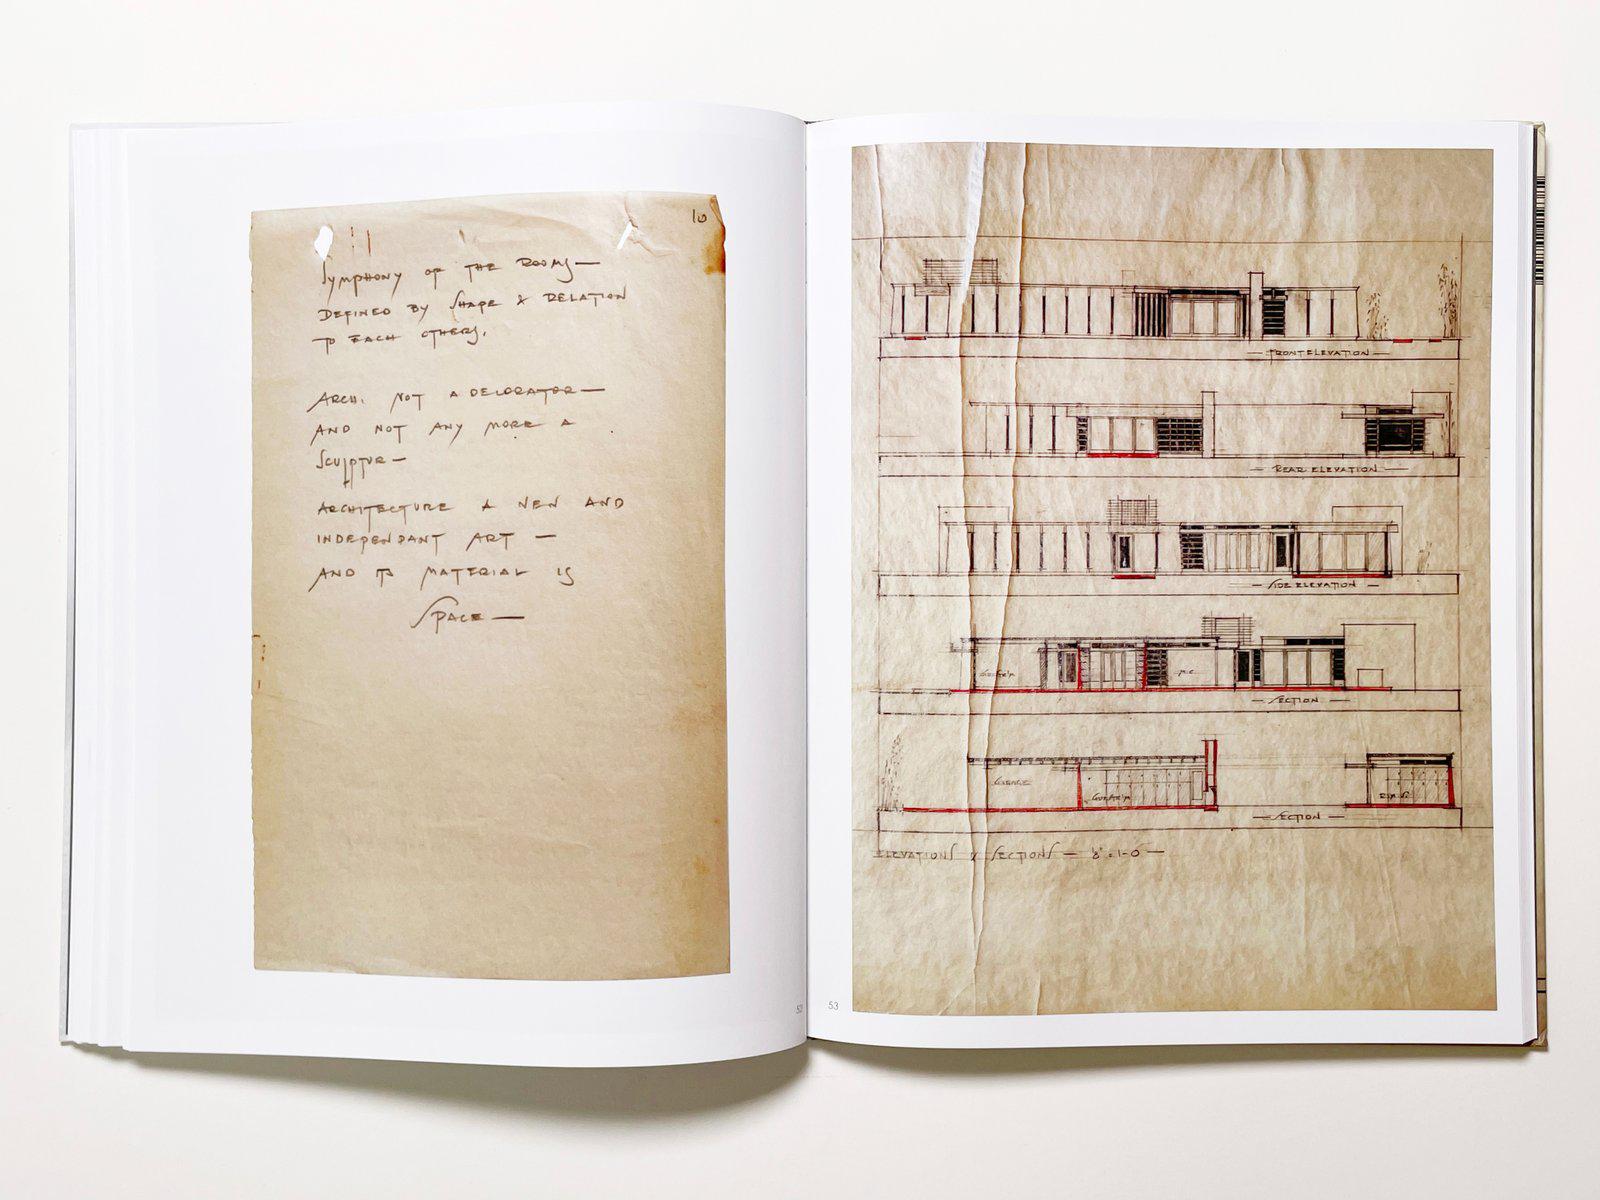 10
SYMPHONY OF THE ROOMS—
DEFINED BY SHAPE & RELATION
TO EACH OTHERS.
ARCH. NOT A DECORATOR—
AND NOT ANY MORE A
SCULPTUR—
ARCHITECTURE A NEW AND
INDEPENDANT ART —
AND ITS MATERIAL IS
SPACE—
52
53
— FRONT ELEVATION —
— REAR ELEVATION —
— SIDE ELEVATION —
— SECTION —
GARAGE
— SECTION —
ELEVATIONS & SECTIONS — 1/8" = 1-0 —